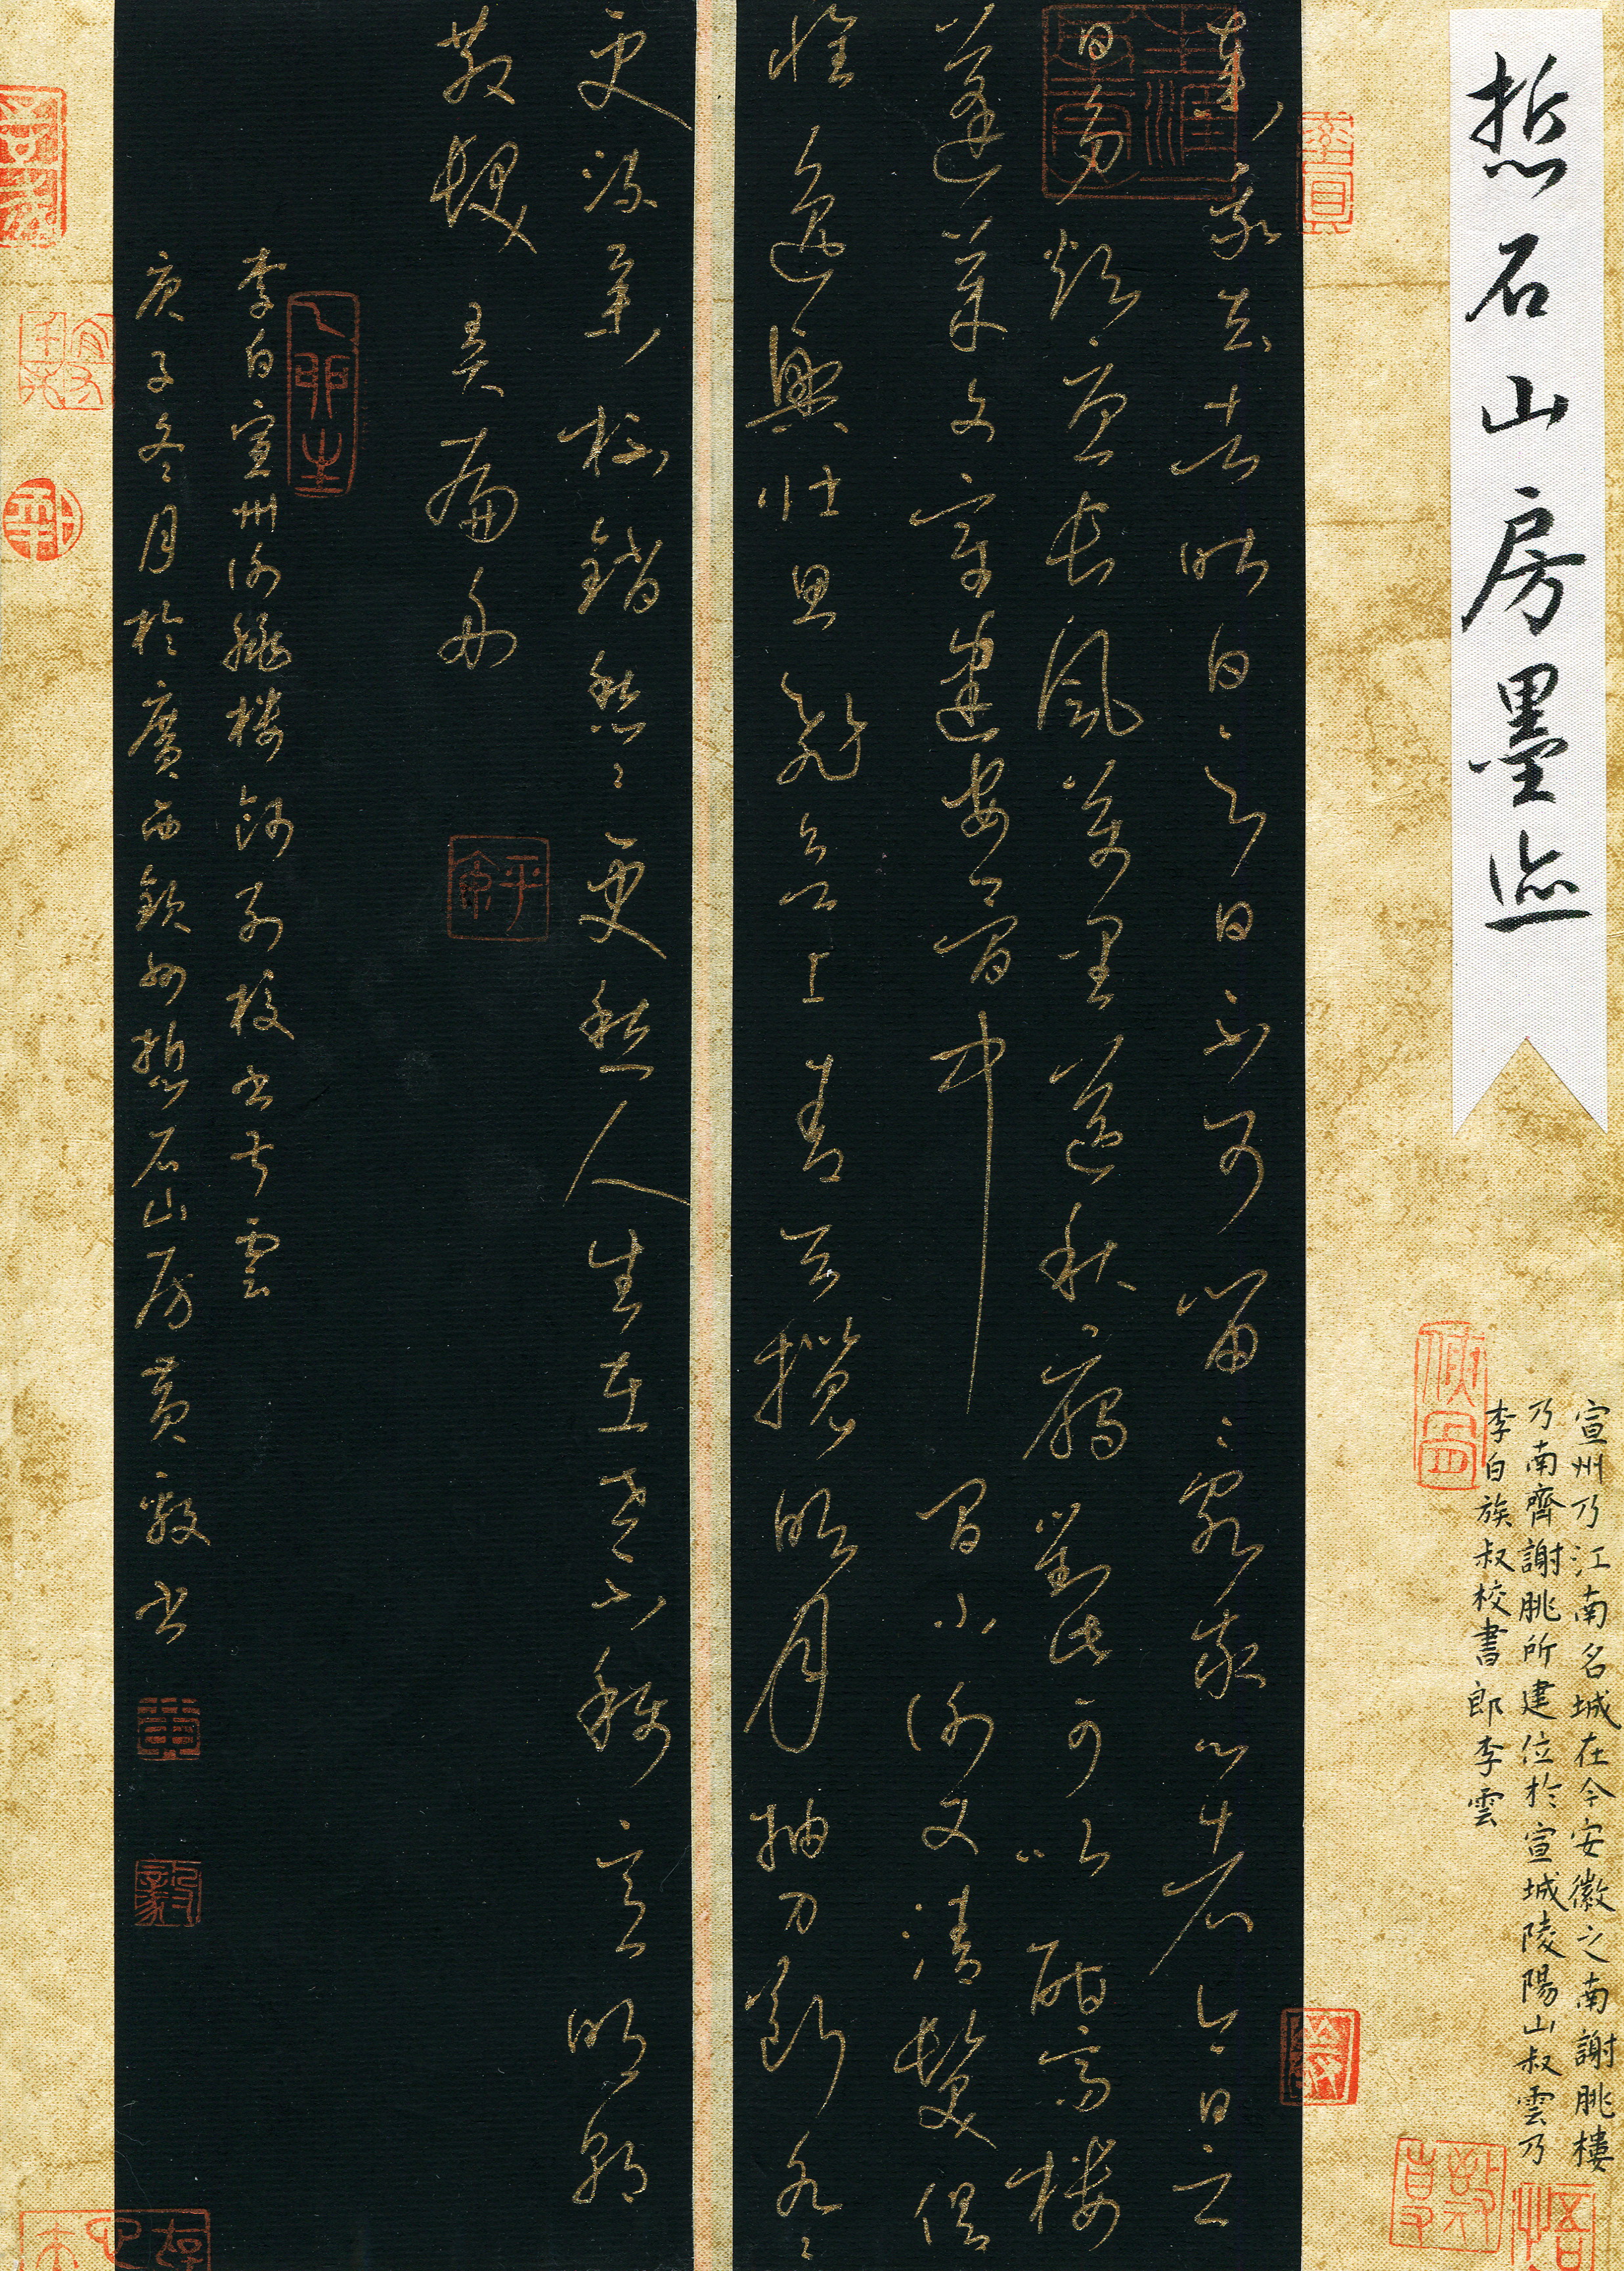 悊石山房墨迹
宣州乃江南名城在今安徽之南謝朓樓
乃南齊謝朓所建位於宣城陵陽山叔雲乃
李白族叔校書郎李雲
棄我去者昨日之日不可留亂我心者今日之
日多煩憂長風萬里送秋雁對此可以酣高樓
蓬萊文章建安骨中間小謝又清發俱
懷逸興壯思飛欲上青天攬明月抽刀斷水々
更流舉杯銷愁々更愁人生在世不稱意明朝
散髮弄扁舟
李白宣州謝朓樓餞別校書叔雲
庚子冬月於廣西欽州悊石山房黃毅書